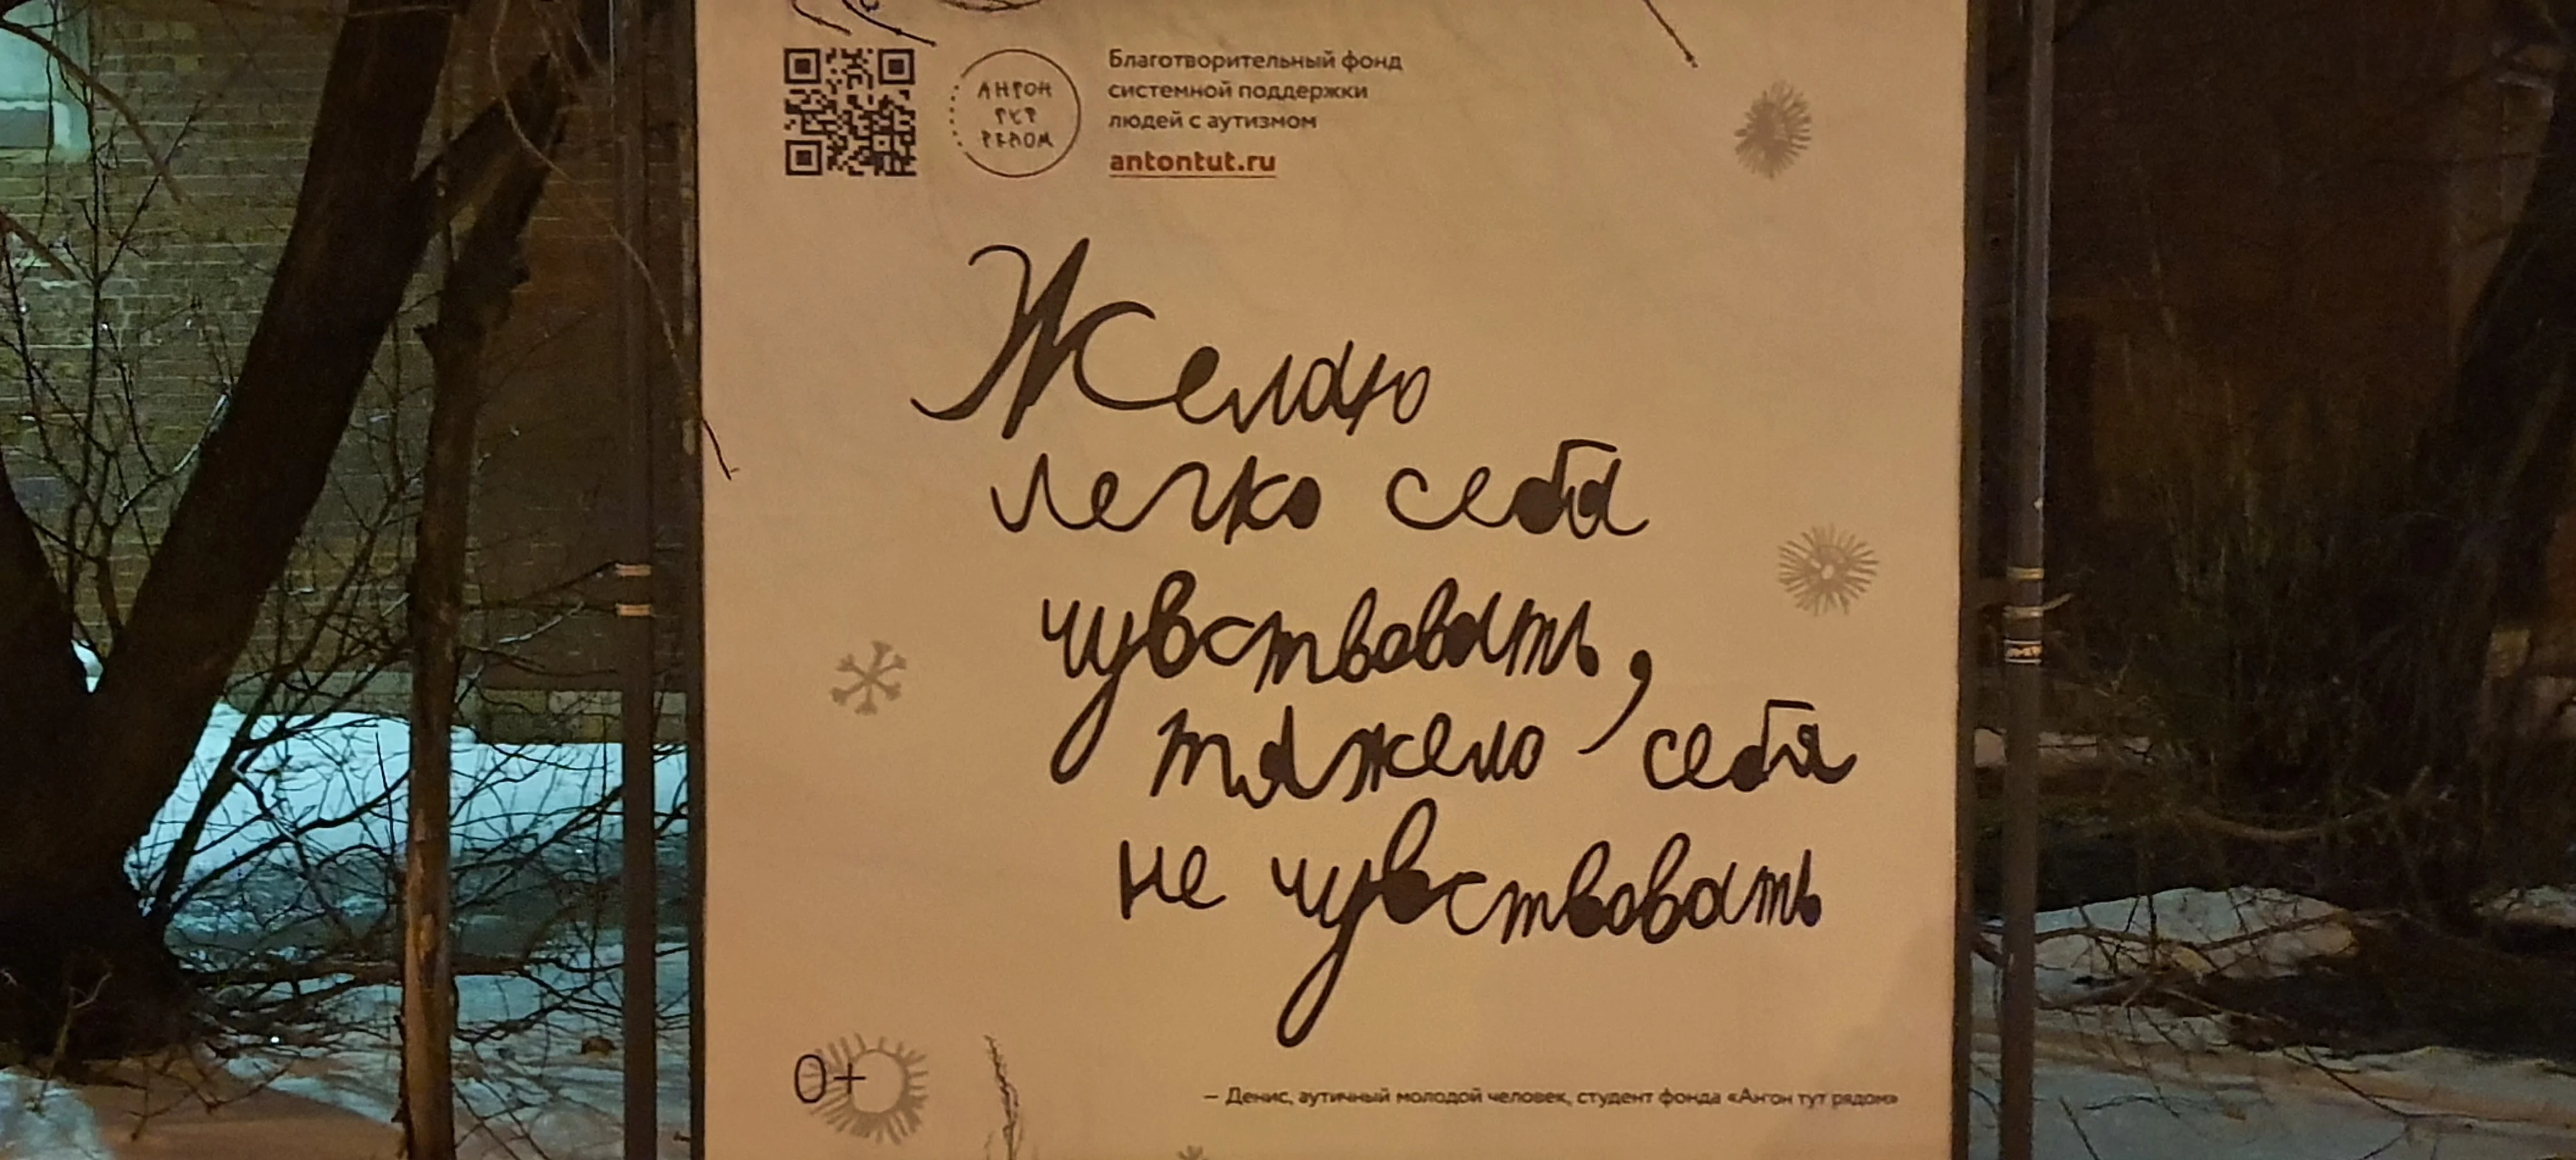 АНТОН
ТУТ
РЯДОМ
Благотворительный фонд
системной поддержки
людей с аутизмом
antontut.ru
Желаю
легко себя
чувствовать,
тяжело себя
не чувствовать
0+
— Денис, аутичный молодой человек, студент фонда «Антон тут рядом»